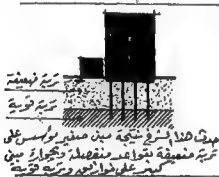 تربة ضعيفة
تربة قوية
حدث هذا الشرخ نتيجة مبنى صغير مؤسس على
تربة ضعيفة بقواعد منفصلة وبجواره مبنى
كبير على خوازيق وتربة قوية